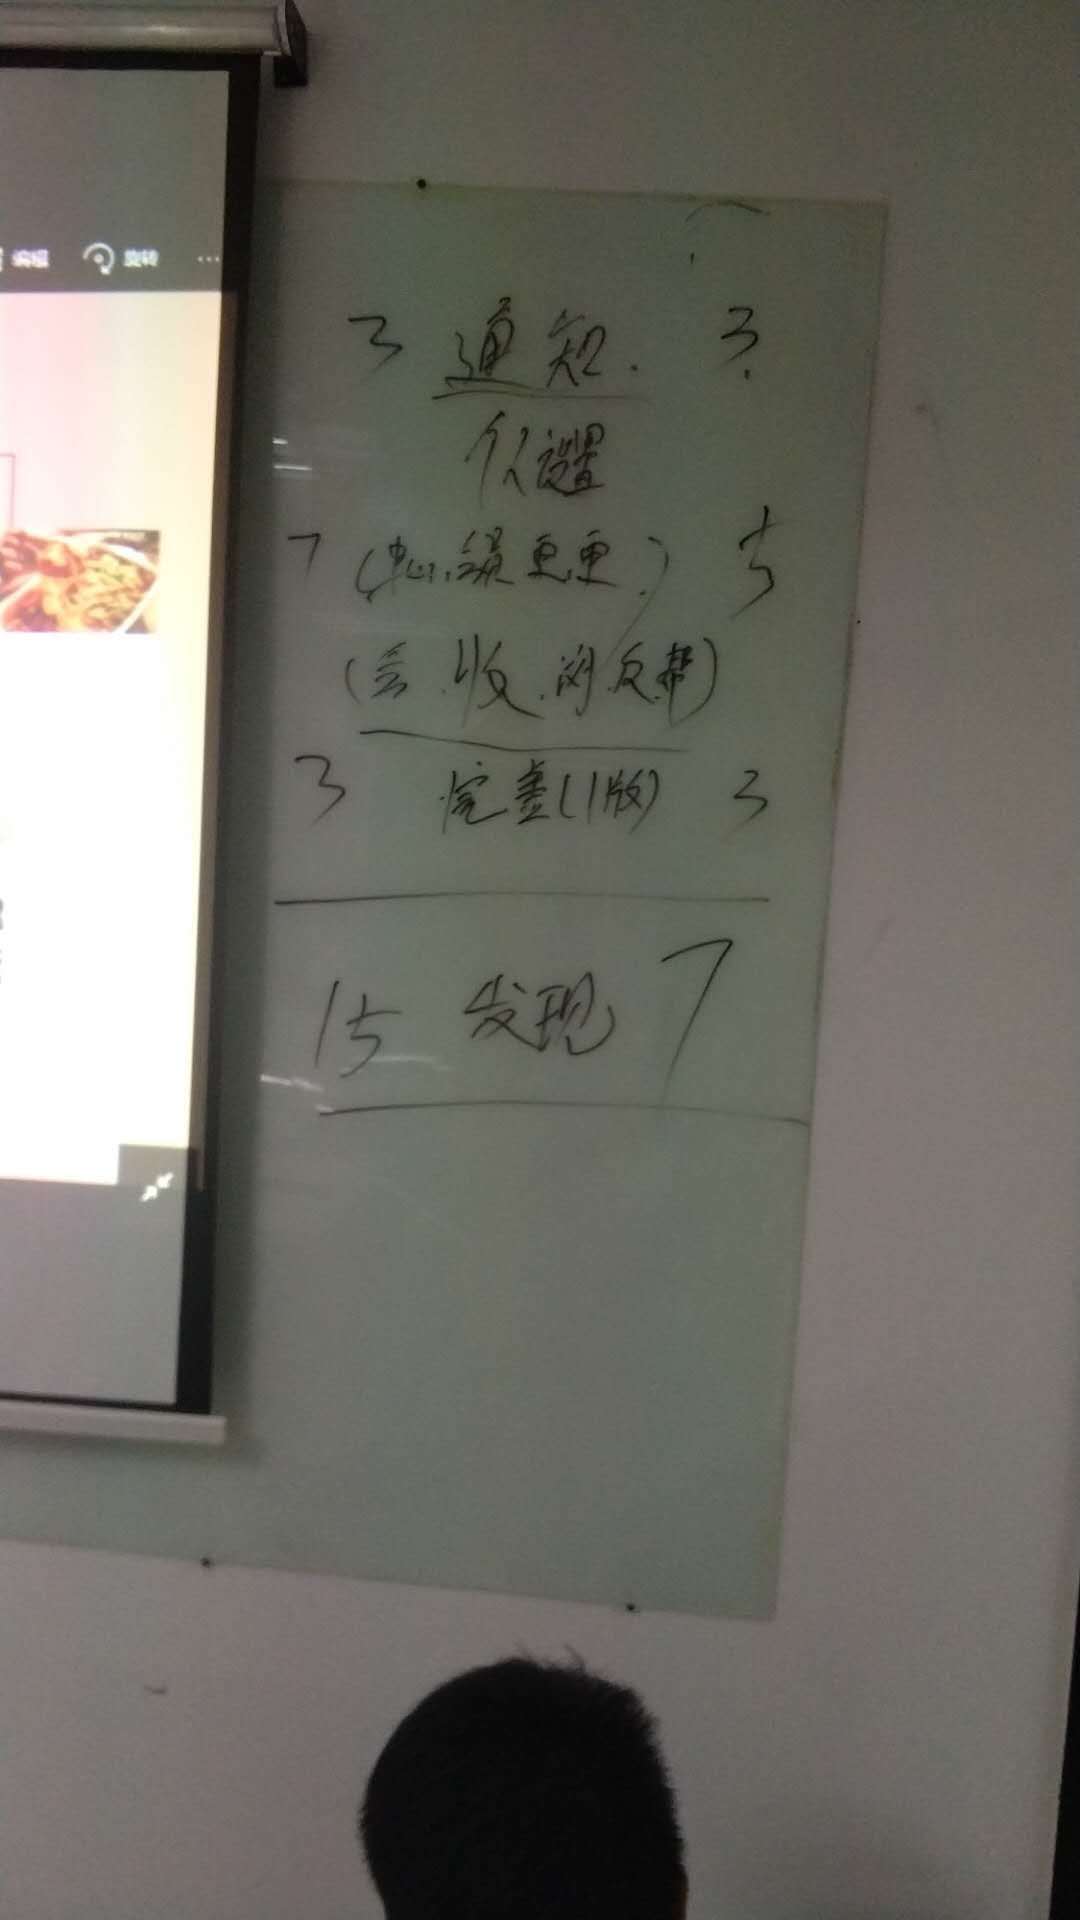 编辑 旋转 ...
3 通知. 3.
个人设置
7 (中心.编更.更.) 5
(会.收.浏.反.帮)
3 完善(1版) 3
15 发现 7